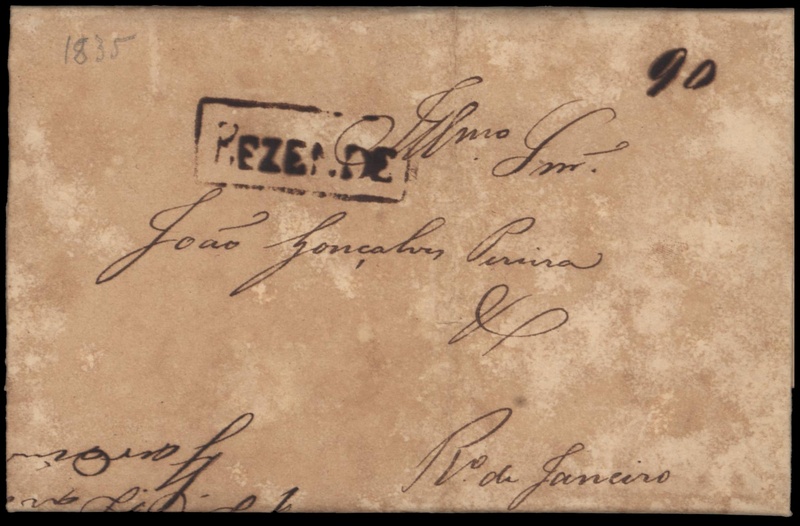 1835
90
REZENDE
Illmo. Snr.
João Gonçalves Pereira
&
Ro. de Janeiro